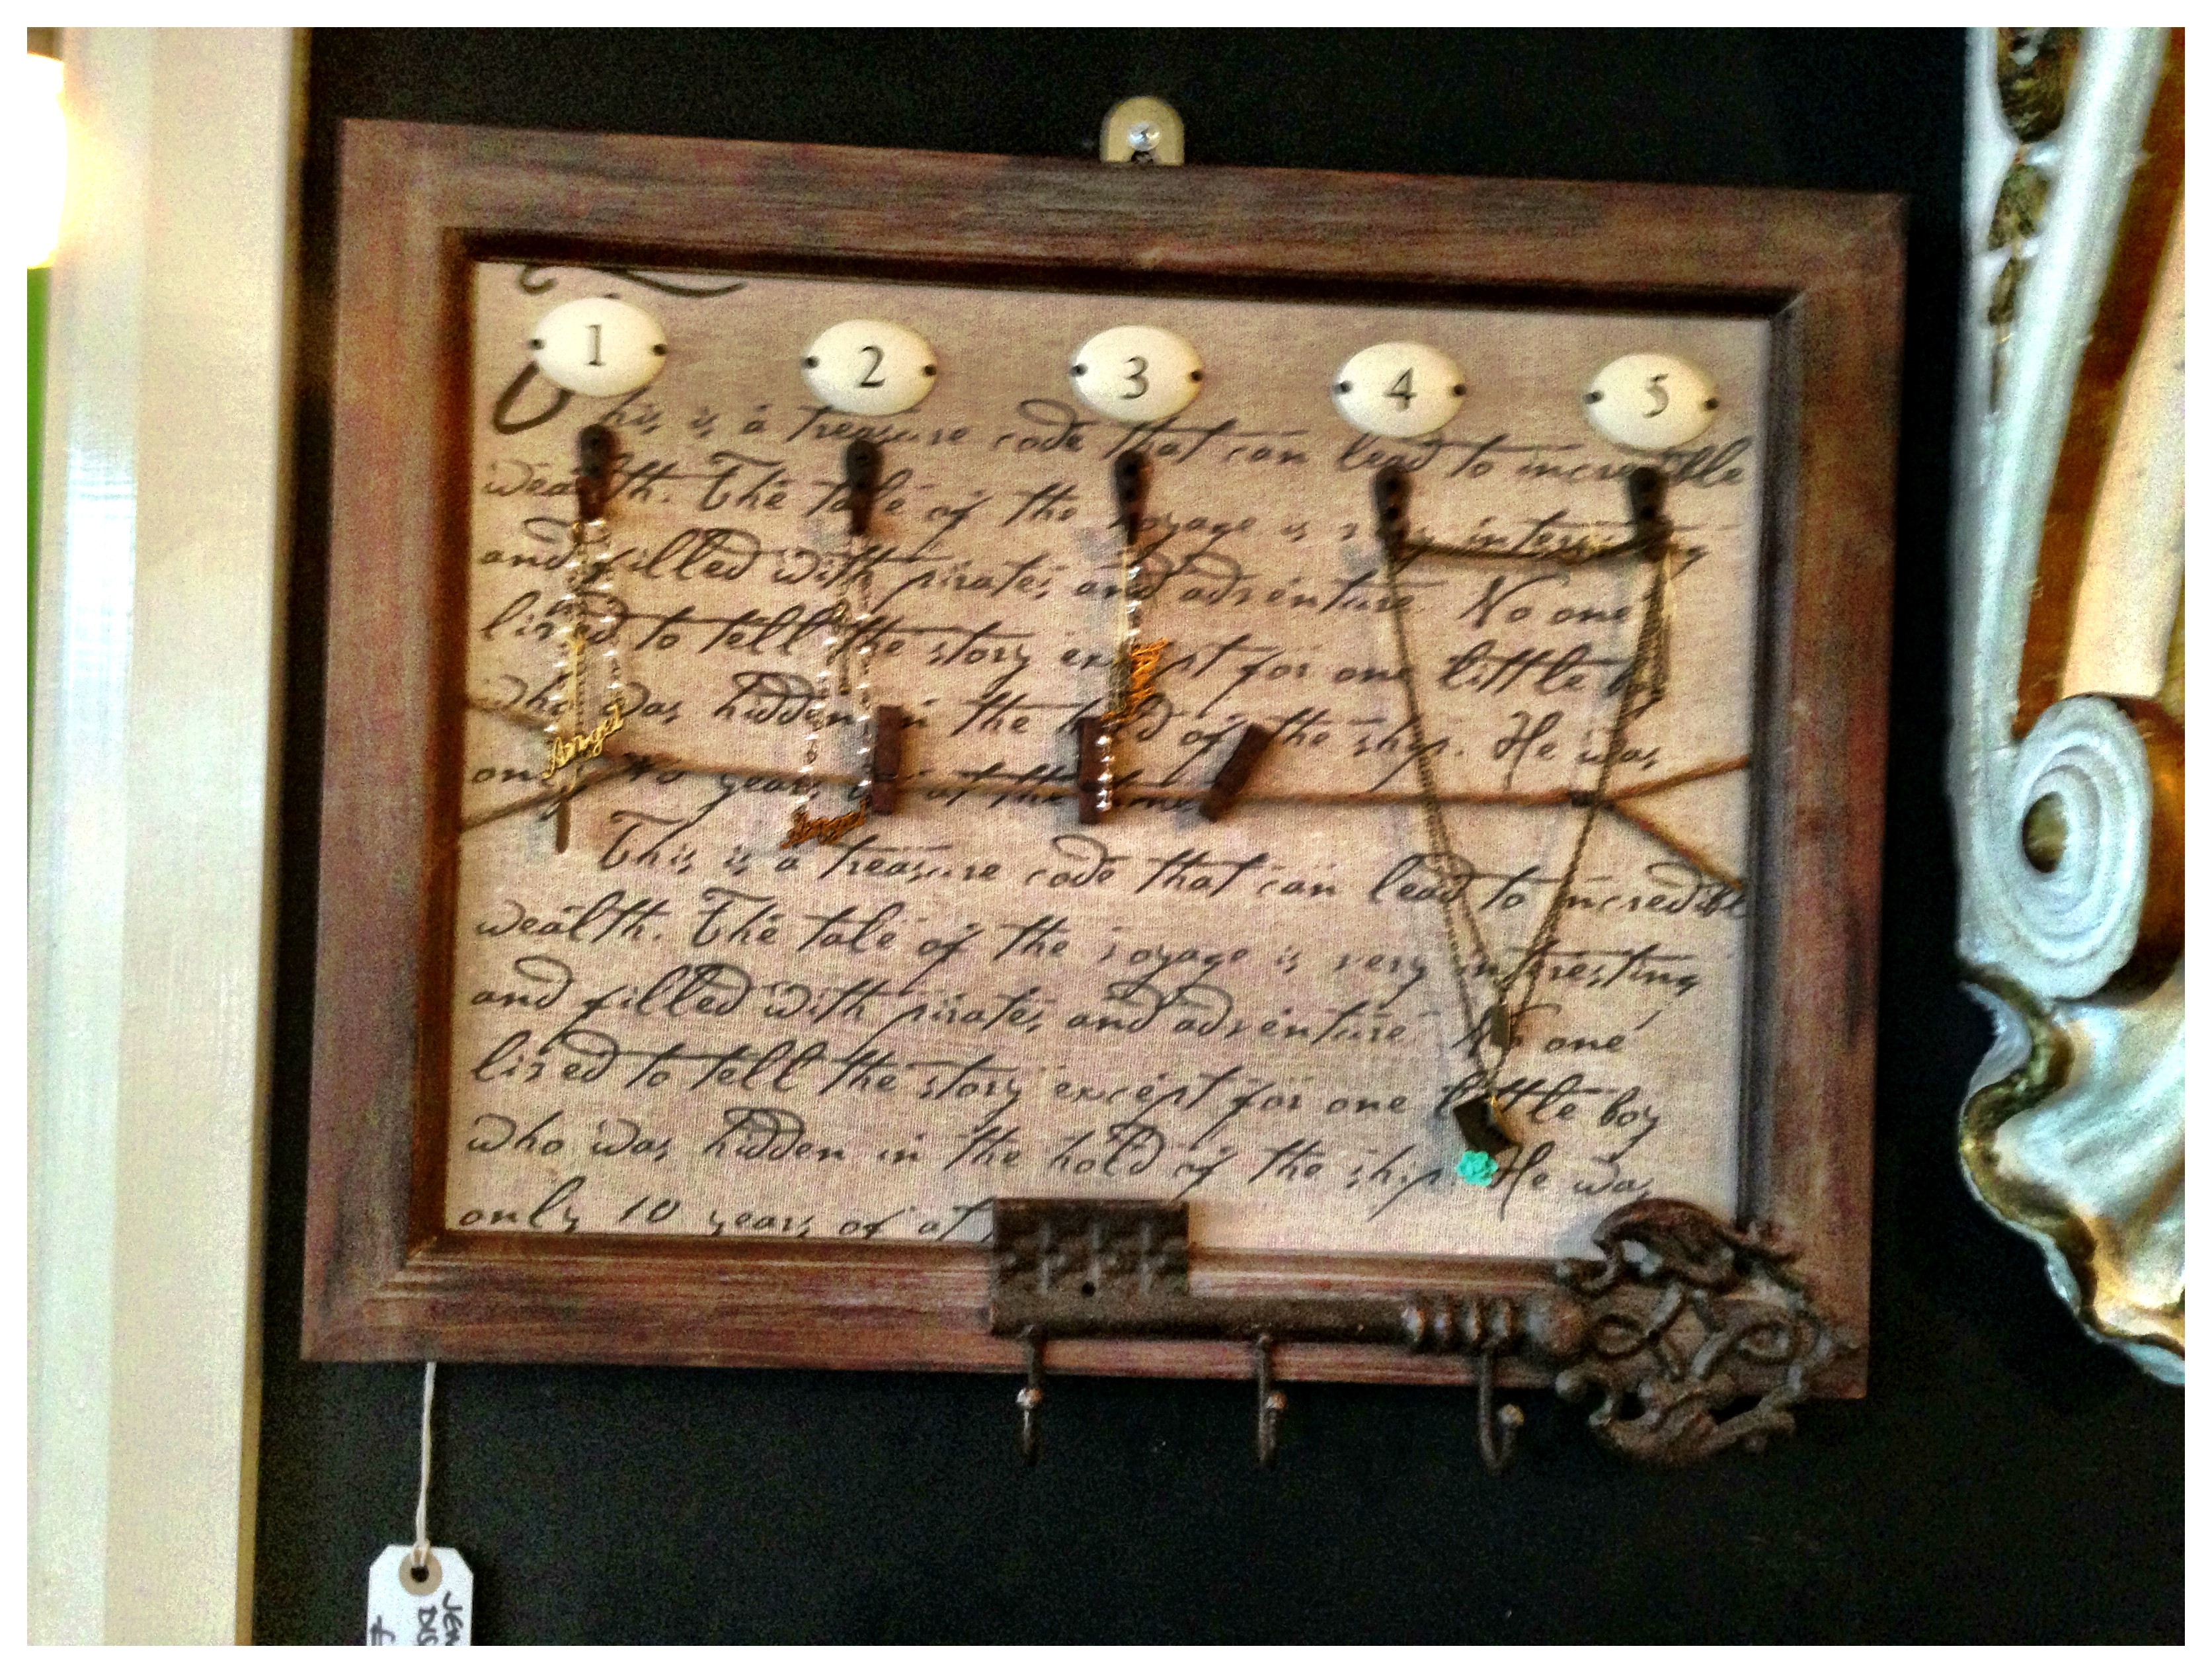 1 2 3 4 5
This is a treasure code that can lead to incredible
wealth. The tale of the voyage is very interesting
and filled with pirates and adventure. No one
lived to tell the story except for one little
who was hidden in the hold of the ship. He was
only 10 years of at the time
This is a treasure code that can lead to incredibl
wealth. The tale of the voyage is very interesting
and filled with pirates and adventure No one
lived to tell the story except for one little boy
who was hidden in the hold of the ship. He was
only 10 years of at
Angel